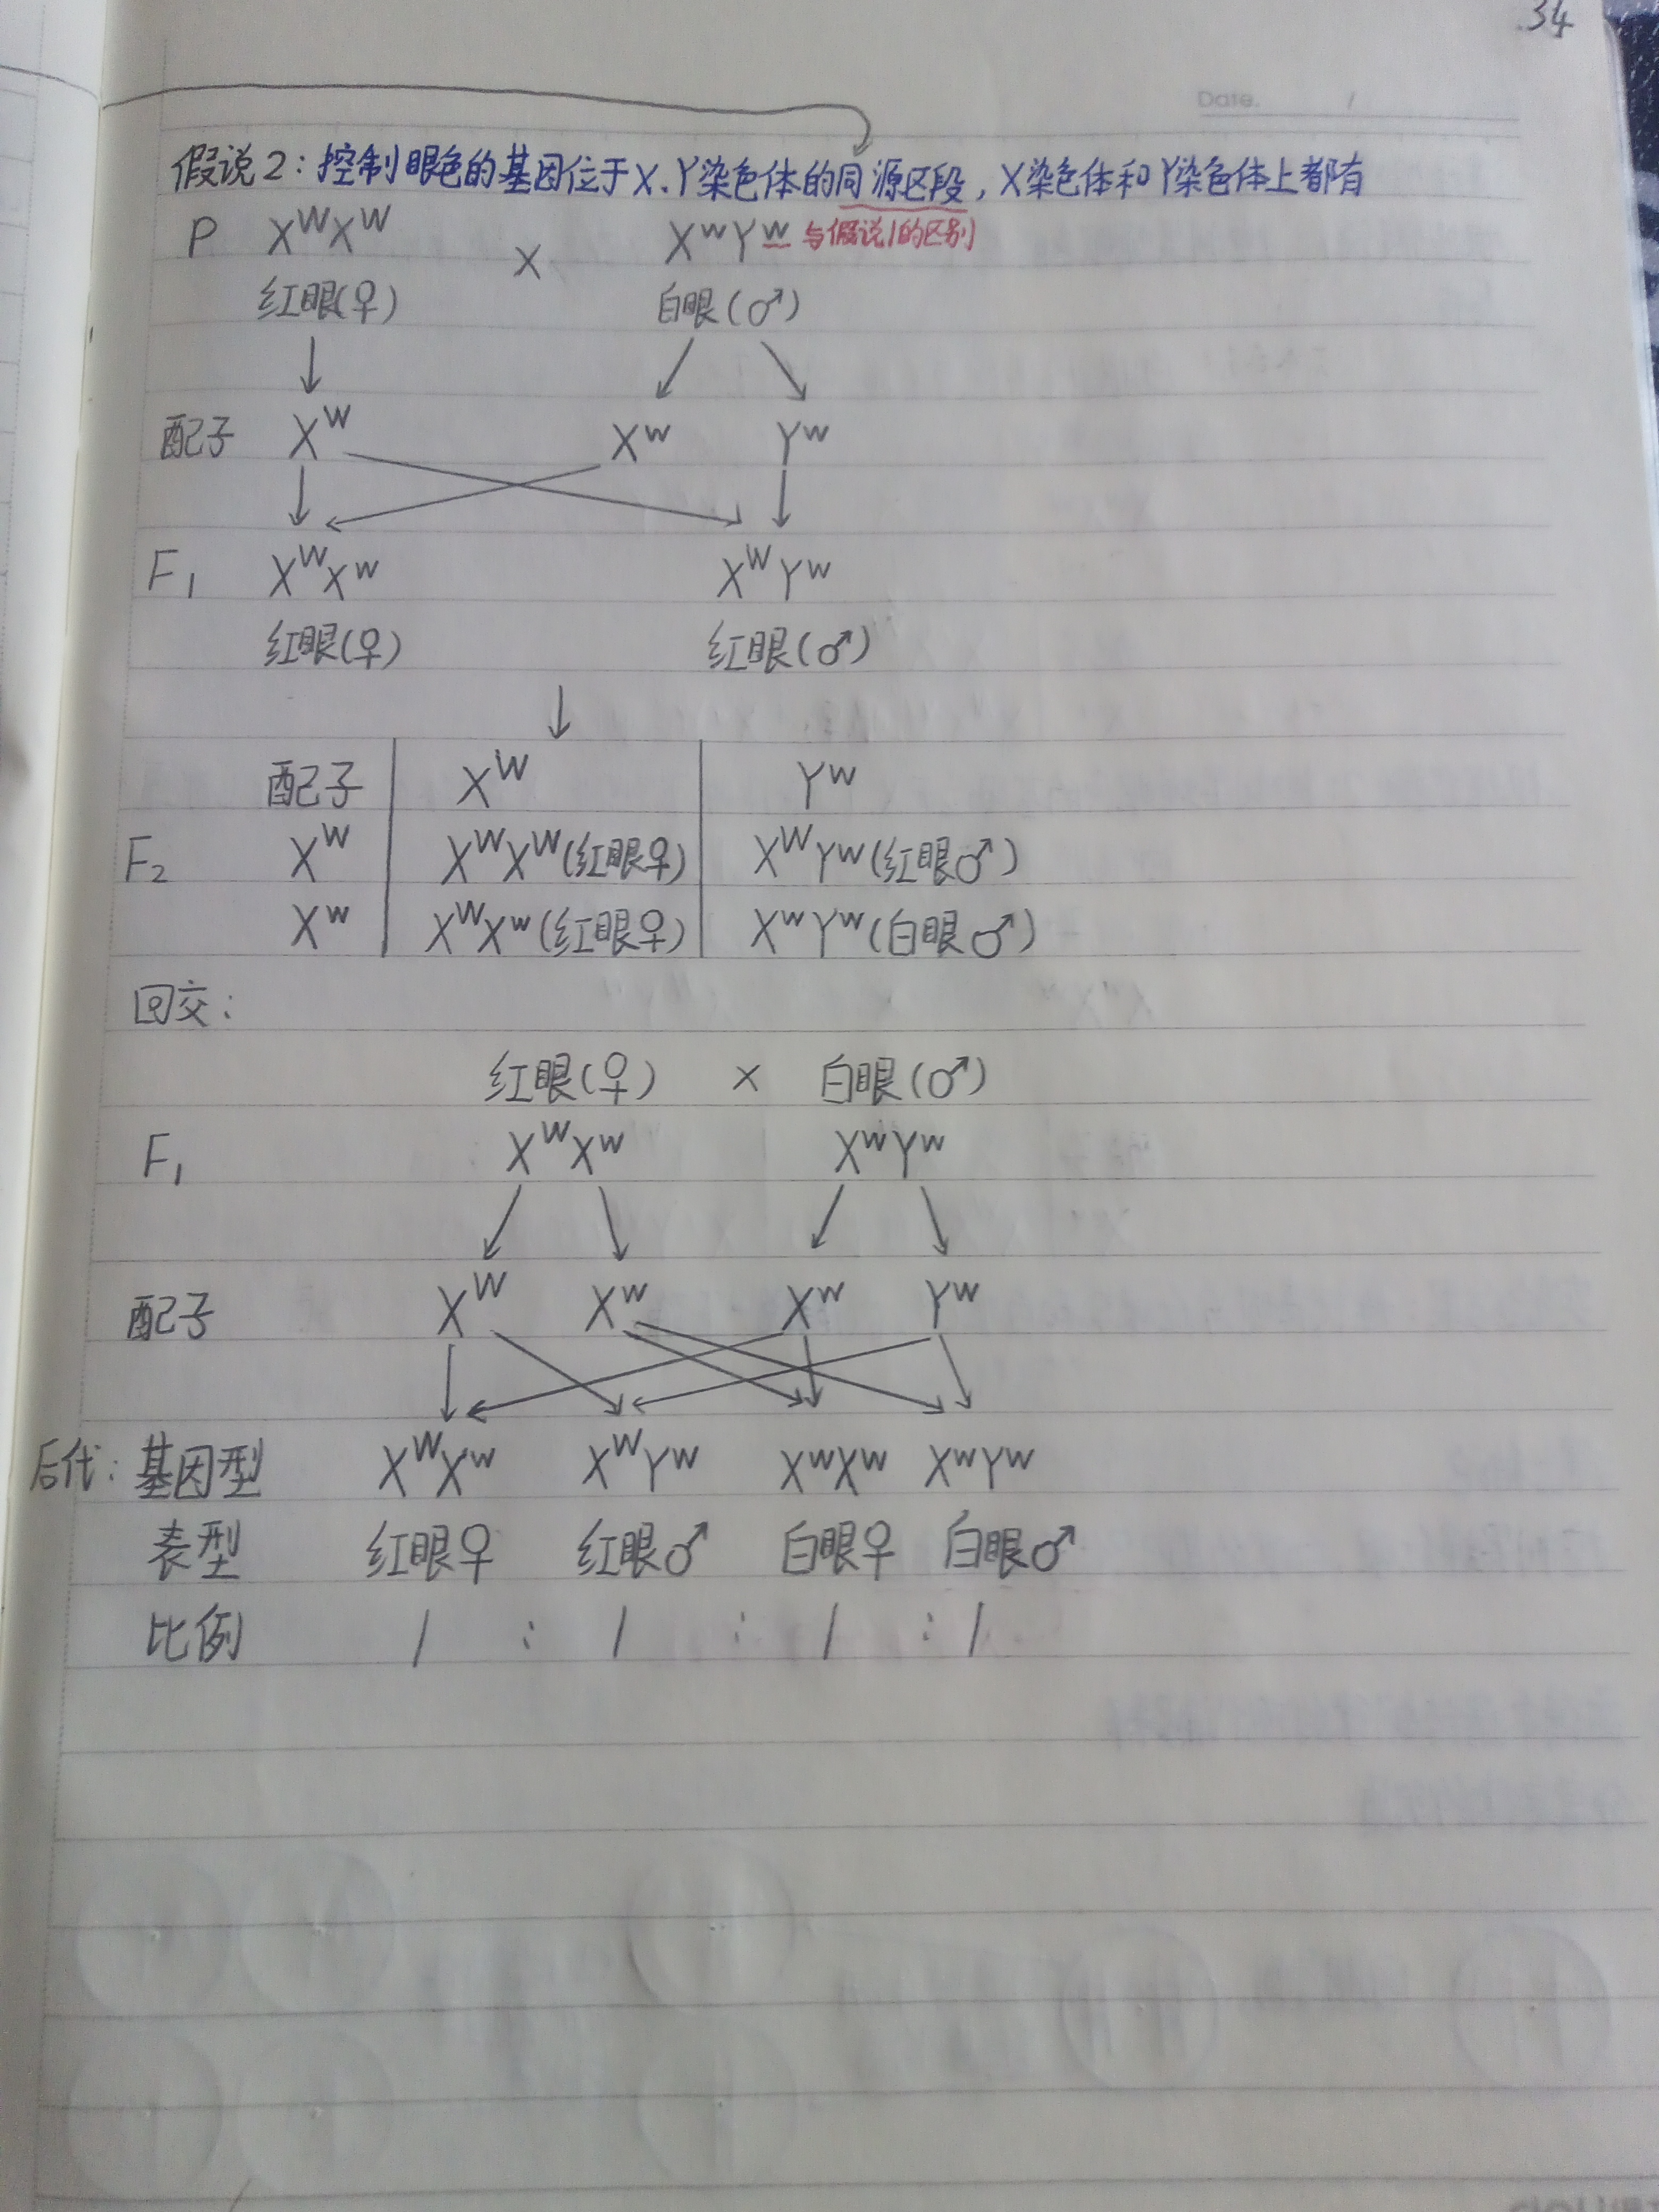 34
Date. /
假说2:控制眼色的基因位于X、Y染色体的同源区段,X染色体和Y染色体上都有
P XᵂXᵂ × XʷYʷ 与假说1的区别
红眼(♀) 白眼(♂)
配子 Xᵂ Xʷ Yʷ
F₁ XᵂXʷ XᵂYʷ
红眼(♀) 红眼(♂)
配子 Xᵂ Yʷ
F₂ Xᵂ XᵂXᵂ(红眼♀) XᵂYʷ(红眼♂)
Xʷ XᵂXʷ(红眼♀) XʷYʷ(白眼♂)
回交:
红眼(♀) × 白眼(♂)
F₁ XᵂXʷ XʷYʷ
配子 Xᵂ Xʷ Xʷ Yʷ
后代:基因型 XᵂXʷ XᵂYʷ XʷXʷ XʷYʷ
表型 红眼♀ 红眼♂ 白眼♀ 白眼♂
比例 1 : 1 : 1 : 1